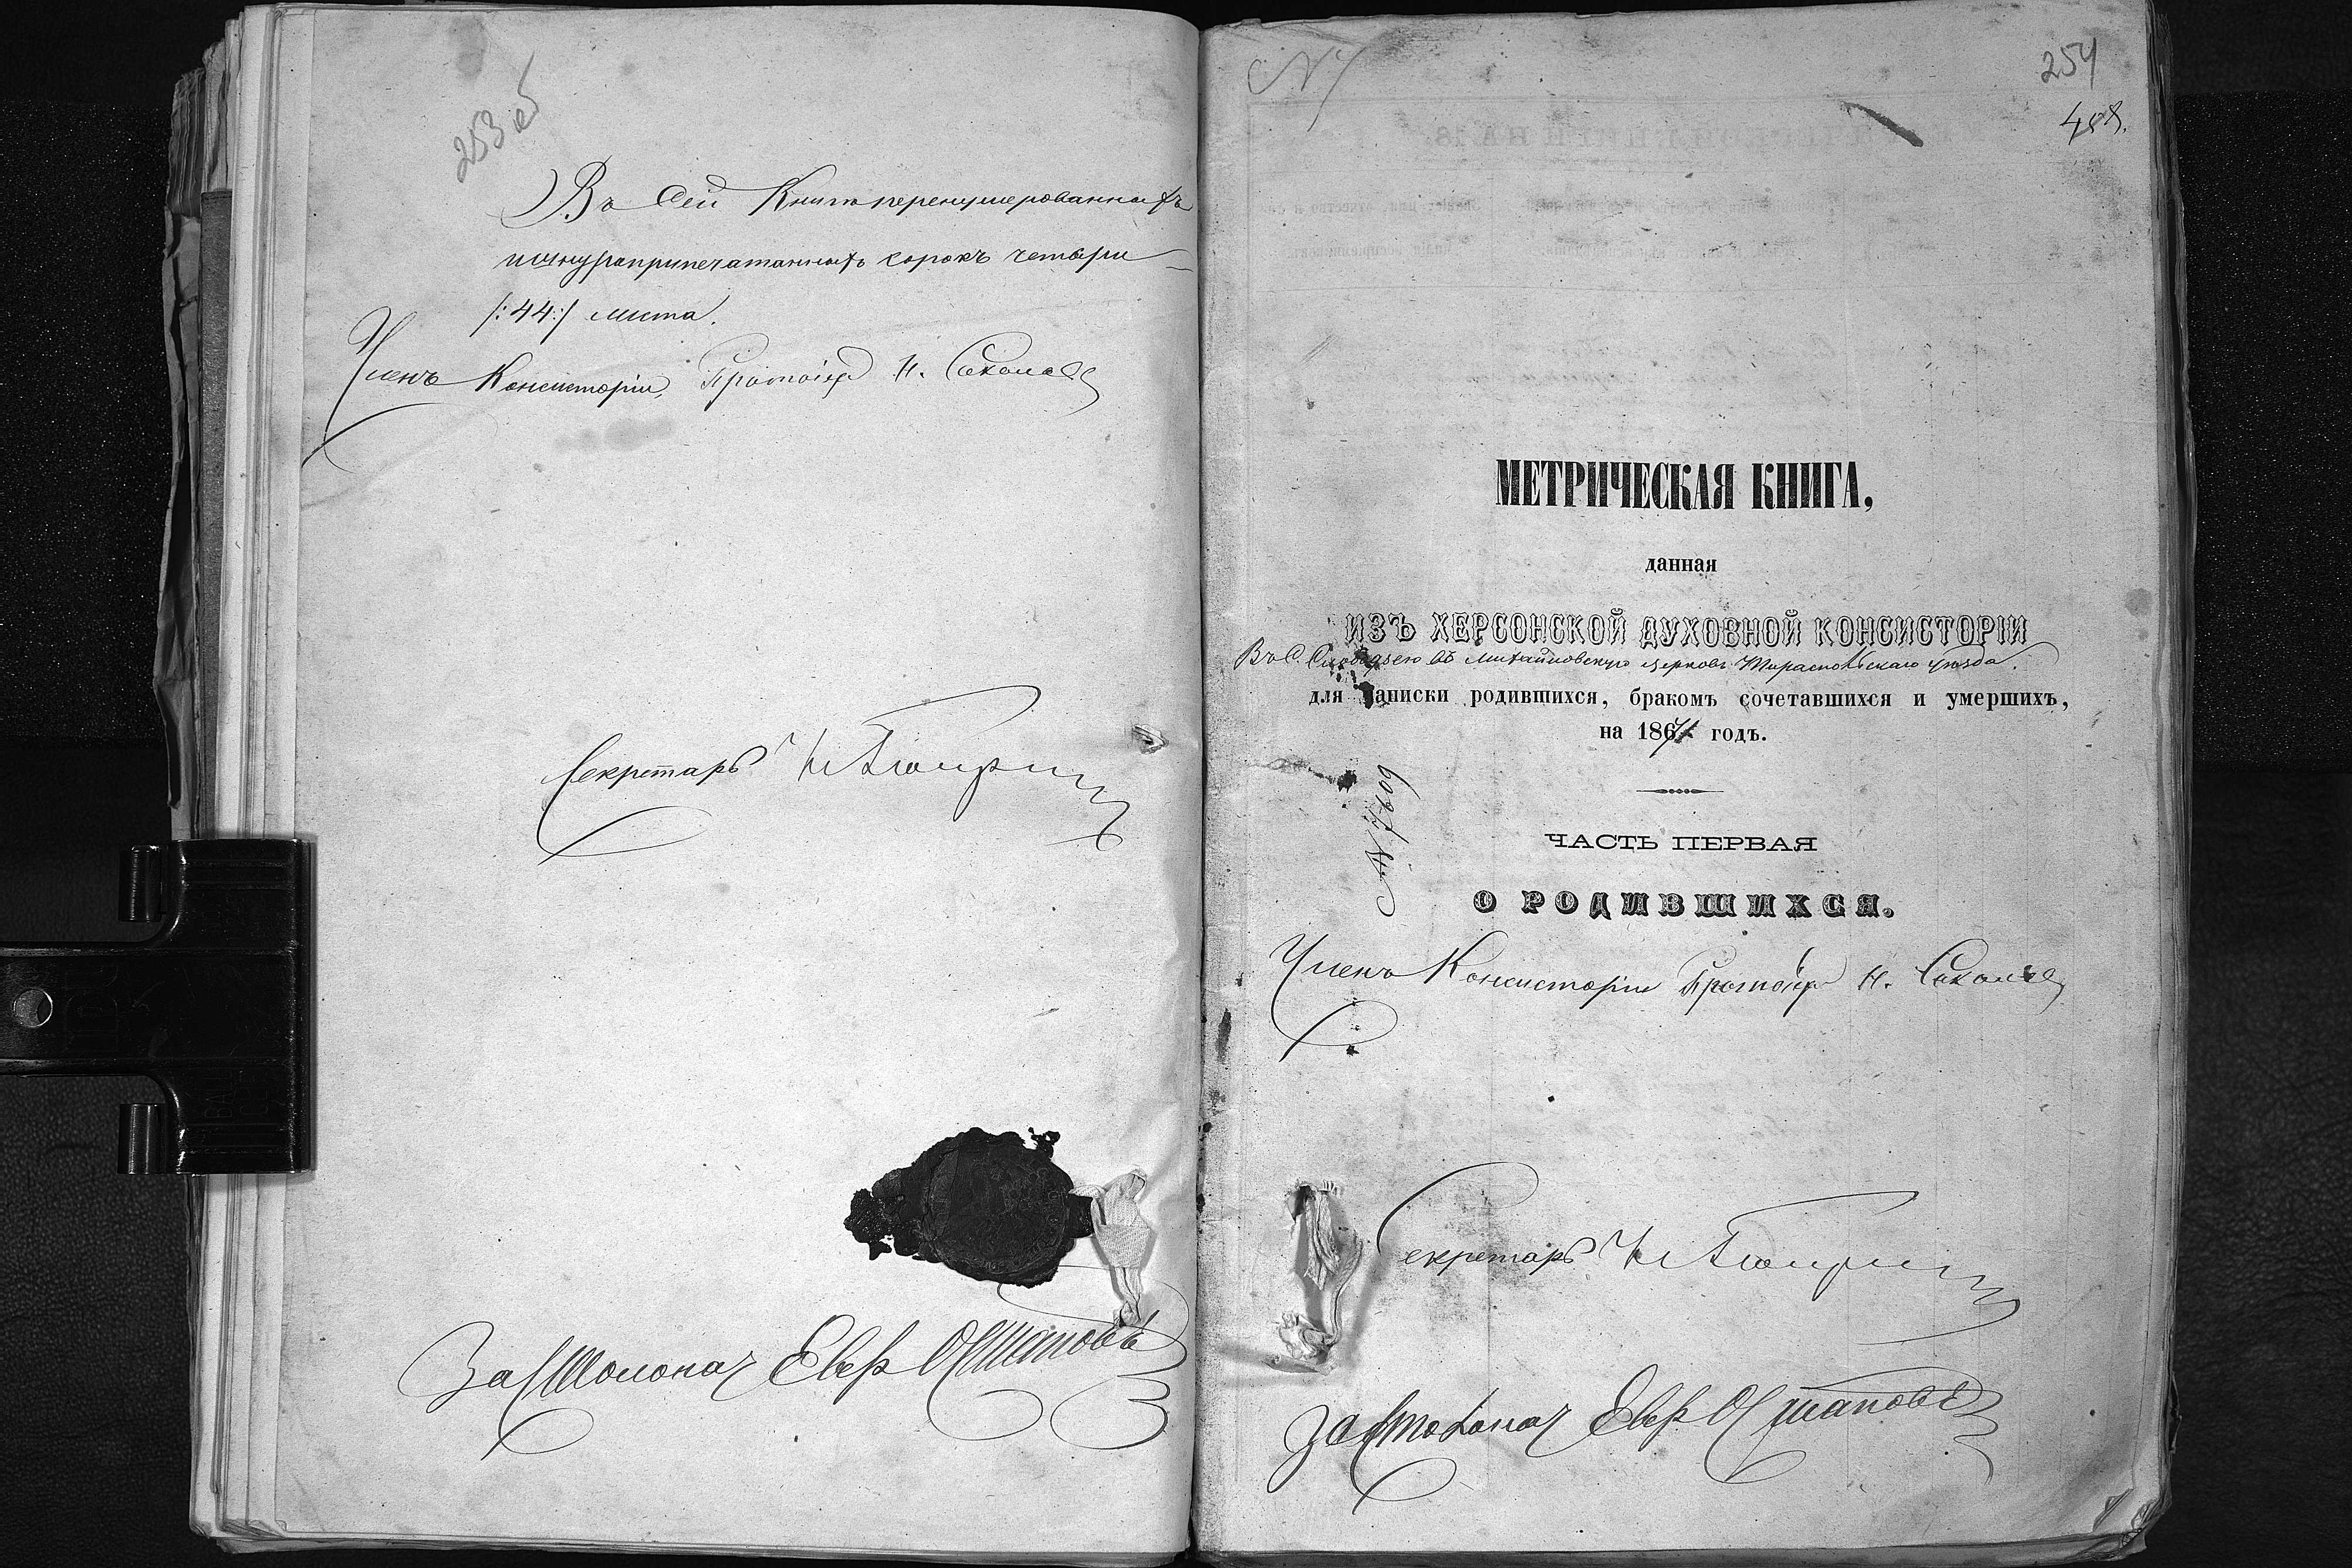 253 об
Въ сей Книге перенумерованныхъ
и шнуроприпечатанныхъ сорокъ четыри
/:44:/ листа.
Членъ Консисторіи, Протоіер Н. Соколовъ
Секретарь
За Столонач Евѳ Осташовъ
254
488.
№
МЕТРИЧЕСКАЯ КНИГА,
данная
ИЗЪ ХЕРСОНСКОЙ ДУХОВНОЙ КОНСИСТОРІИ
Въ С. Слободзею въ Михайловскую церковь Тираспольскаго уѣзда.
для записки родившихся, бракомъ сочетавшихся и умершихъ,
на 1864 годъ.
ЧАСТЬ ПЕРВАЯ
О РОДИВШИХСЯ.
Членъ Консисторіи Протоіер Н. Соколовъ
Секретарь
За Столонач Евѳ